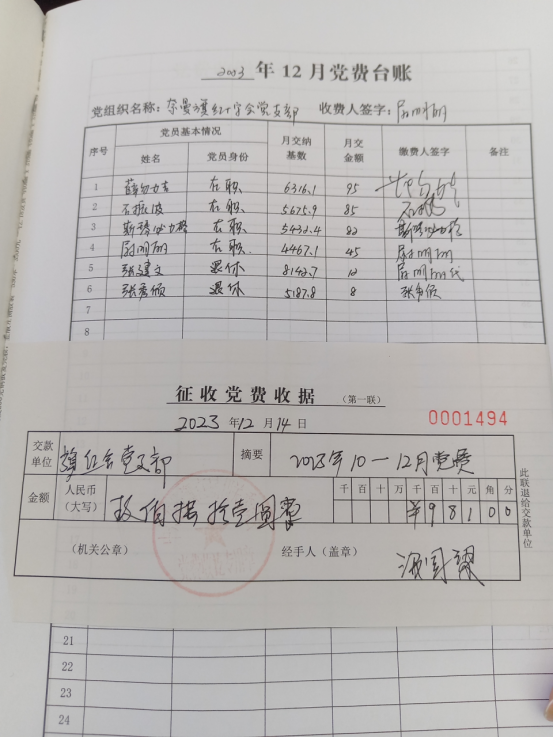 2023 年12月党费台账
党组织名称：奈曼旗红十字会党支部 收费人签字：尉明丽
序号 党员基本情况 月交纳基数 月交金额 缴费人签字 备注
姓名 党员身份
1 在职 6316.1 95
2 石振波 在职 5675.9 85
3 在职 5432.4 82
4 尉明丽 在职 4467.1 45 尉明丽
5 张建文 退休 8142.7 12 尉明丽代
6 退休 5187.8 8
7
8
征收党费收据 （第一联）
2023 年 12 月 14 日 0001494
交款单位 旗红会党支部 摘要 2023年10—12月党费
金额 人民币（大写） 玖佰捌拾壹圆零 千 百 十 万 千 百 十 元 角 分
¥ 9 8 1 0 0
（机关公章） 经手人（盖章）
此联退给交款单位
21
22
23
24